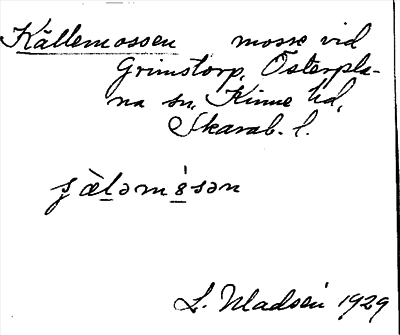 Källemossen mosse vid
Grimstorp, Österpla-
na sn, Kinne hd,
Skarab. l.
L. Madsén 1929